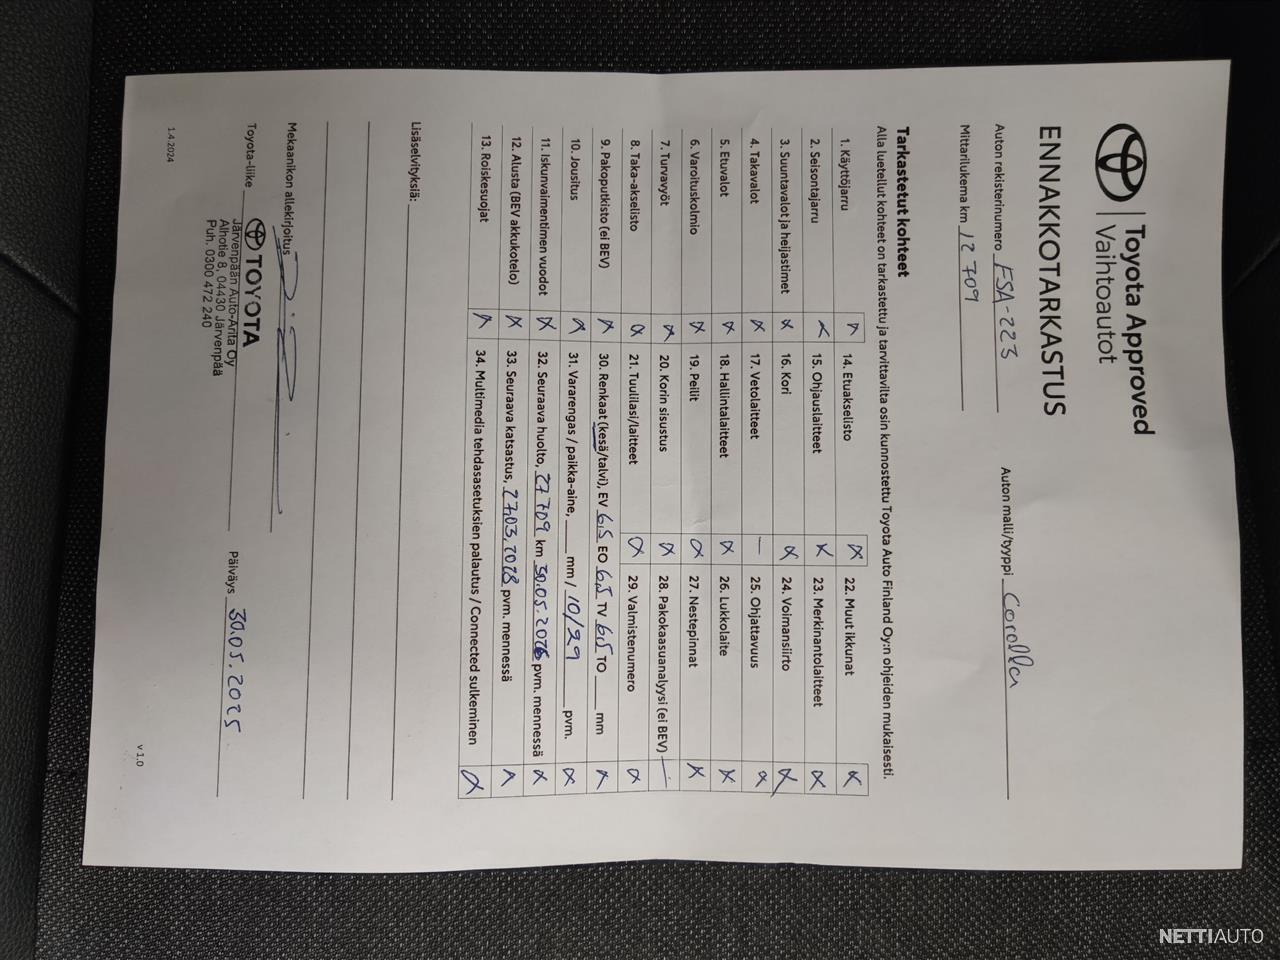 Toyota Approved
Vaihtoautot
ENNAKKOTARKASTUS
Auton rekisterinumero FSA-223 Auton malli/tyyppi Corolla
Mittarilukema km 12 709
Tarkastetut kohteet
Alla luetellut kohteet on tarkastettu ja tarvittavilta osin kunnostettu Toyota Auto Finland Oy:n ohjeiden mukaisesti.
1. Käyttöjarru 14. Etuakselisto 22. Muut ikkunat
2. Seisontajarru 15. Ohjauslaitteet 23. Merkinantolaitteet
3. Suuntavalot ja heijastimet 16. Kori 24. Voimansiirto
4. Takavalot 17. Vetolaitteet — 25. Ohjattavuus
5. Etuvalot 18. Hallintalaitteet 26. Lukkolaite
6. Varoituskolmio 19. Peilit 27. Nestepinnat
7. Turvavyöt 20. Korin sisustus 28. Pakokaasuanalyysi (ei BEV) —
8. Taka-akselisto 21. Tuulilasi/laitteet 29. Valmistenumero
9. Pakoputkisto (ei BEV) 30. Renkaat (kesä/talvi), EV 6,5 EO 6,5 TV 6,5 TO ____ mm
10. Jousitus 31. Vararengas / paikka-aine, ____ mm / 10/29 pvm.
11. Iskunvaimentimen vuodot 32. Seuraava huolto, 27 709 km 30.05.2026 pvm. mennessä
12. Alusta (BEV akkukotelo) 33. Seuraava katsastus, 27.03.2028 pvm. mennessä
13. Roiskesuojat 34. Multimedia tehdasasetuksien palautus / Connected sulkeminen
Lisäselvityksiä:
Mekaanikon allekirjoitus
Toyota-liike TOYOTA Päiväys 30.05.2025
Järvenpään Auto-Arita Oy
Alhotie 8, 04430 Järvenpää
Puh. 0300 472 240
1.4.2024 v 1.0
NETTIAUTO